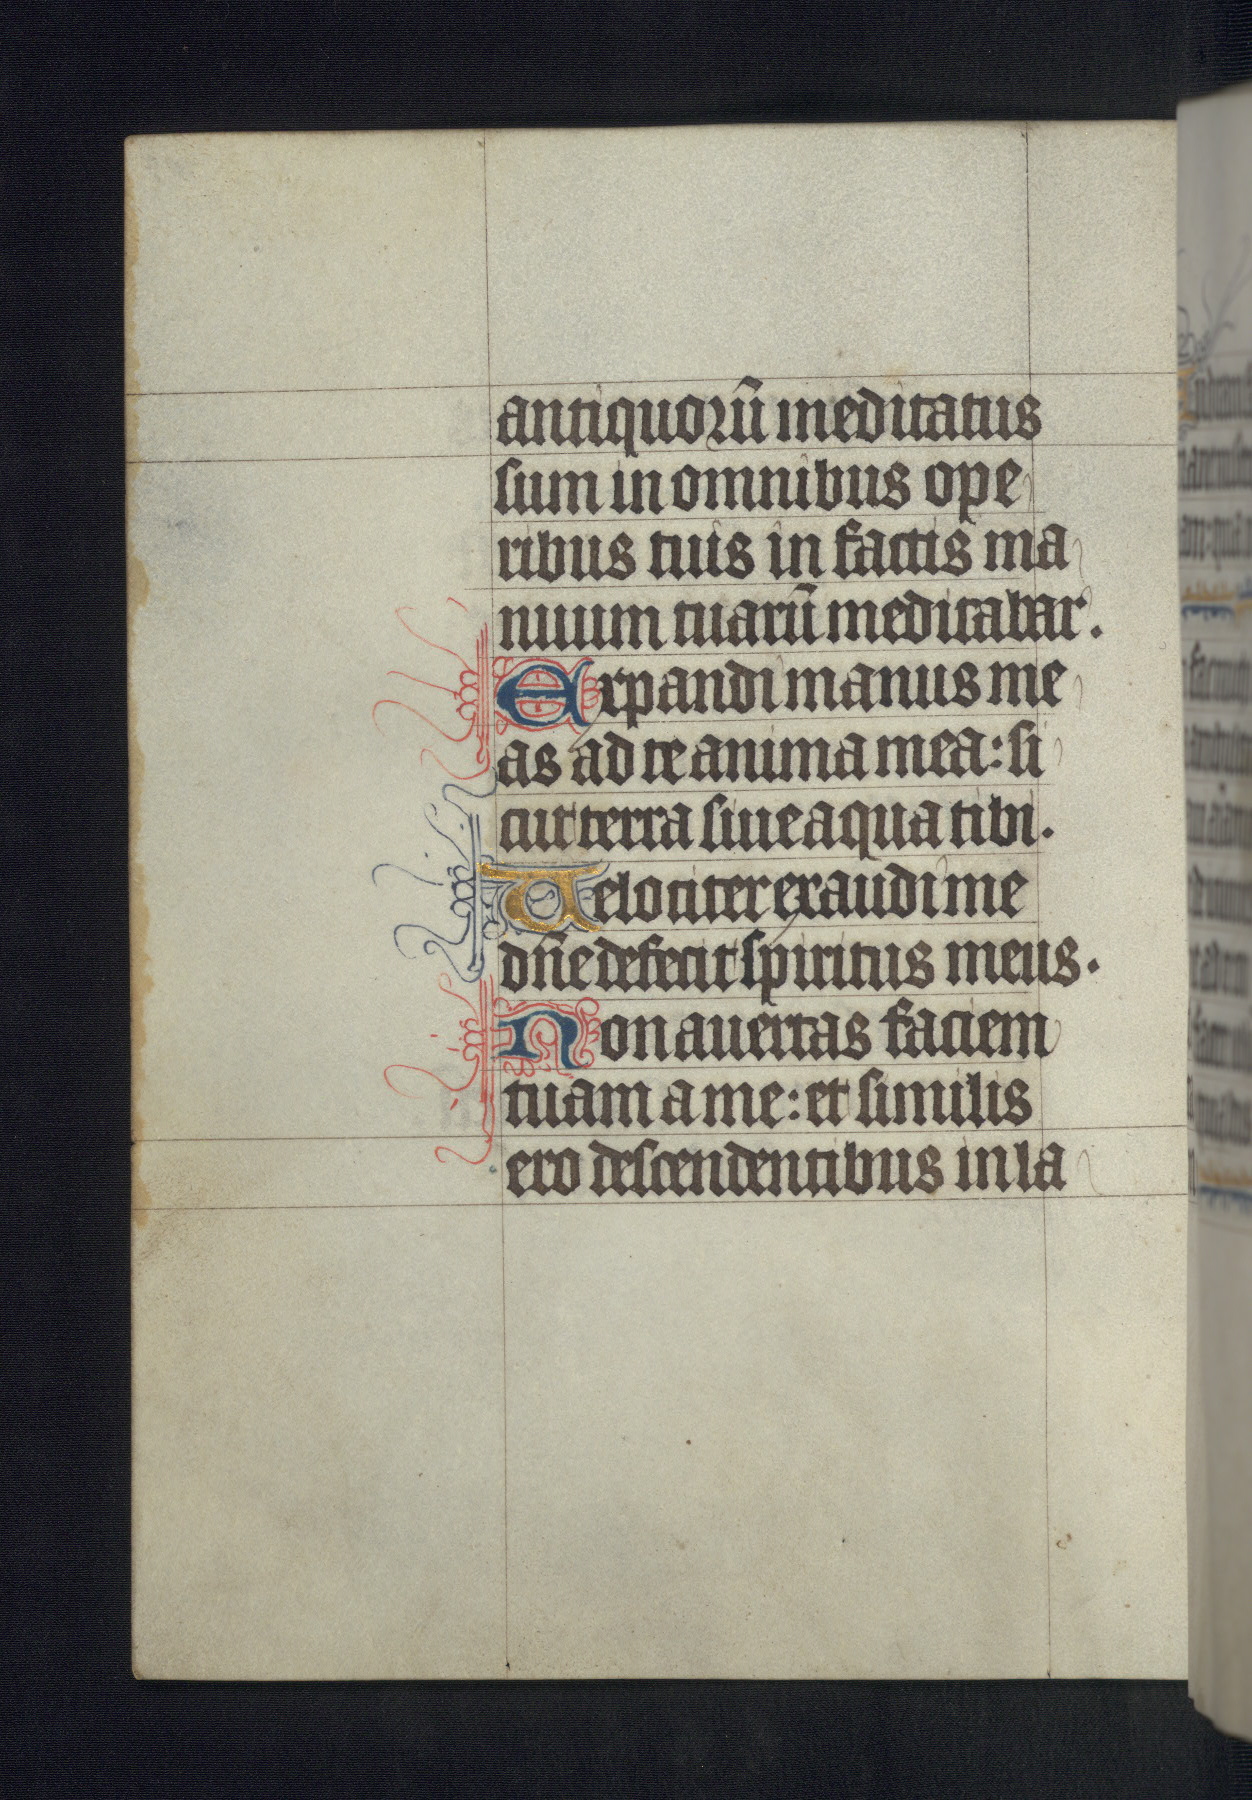 antiquorū meditatus
sum in omnibus ope
ribus tuis in factis ma
nuum tuarū meditabar.
Expandi manus me
as ad te anima mea: si
cut terra sine aqua tibi.
Uelociter exaudi me
dñe defecit spiritus meus.
Non auertas faciem
tuam a me: et similis
ero descendentibus in la